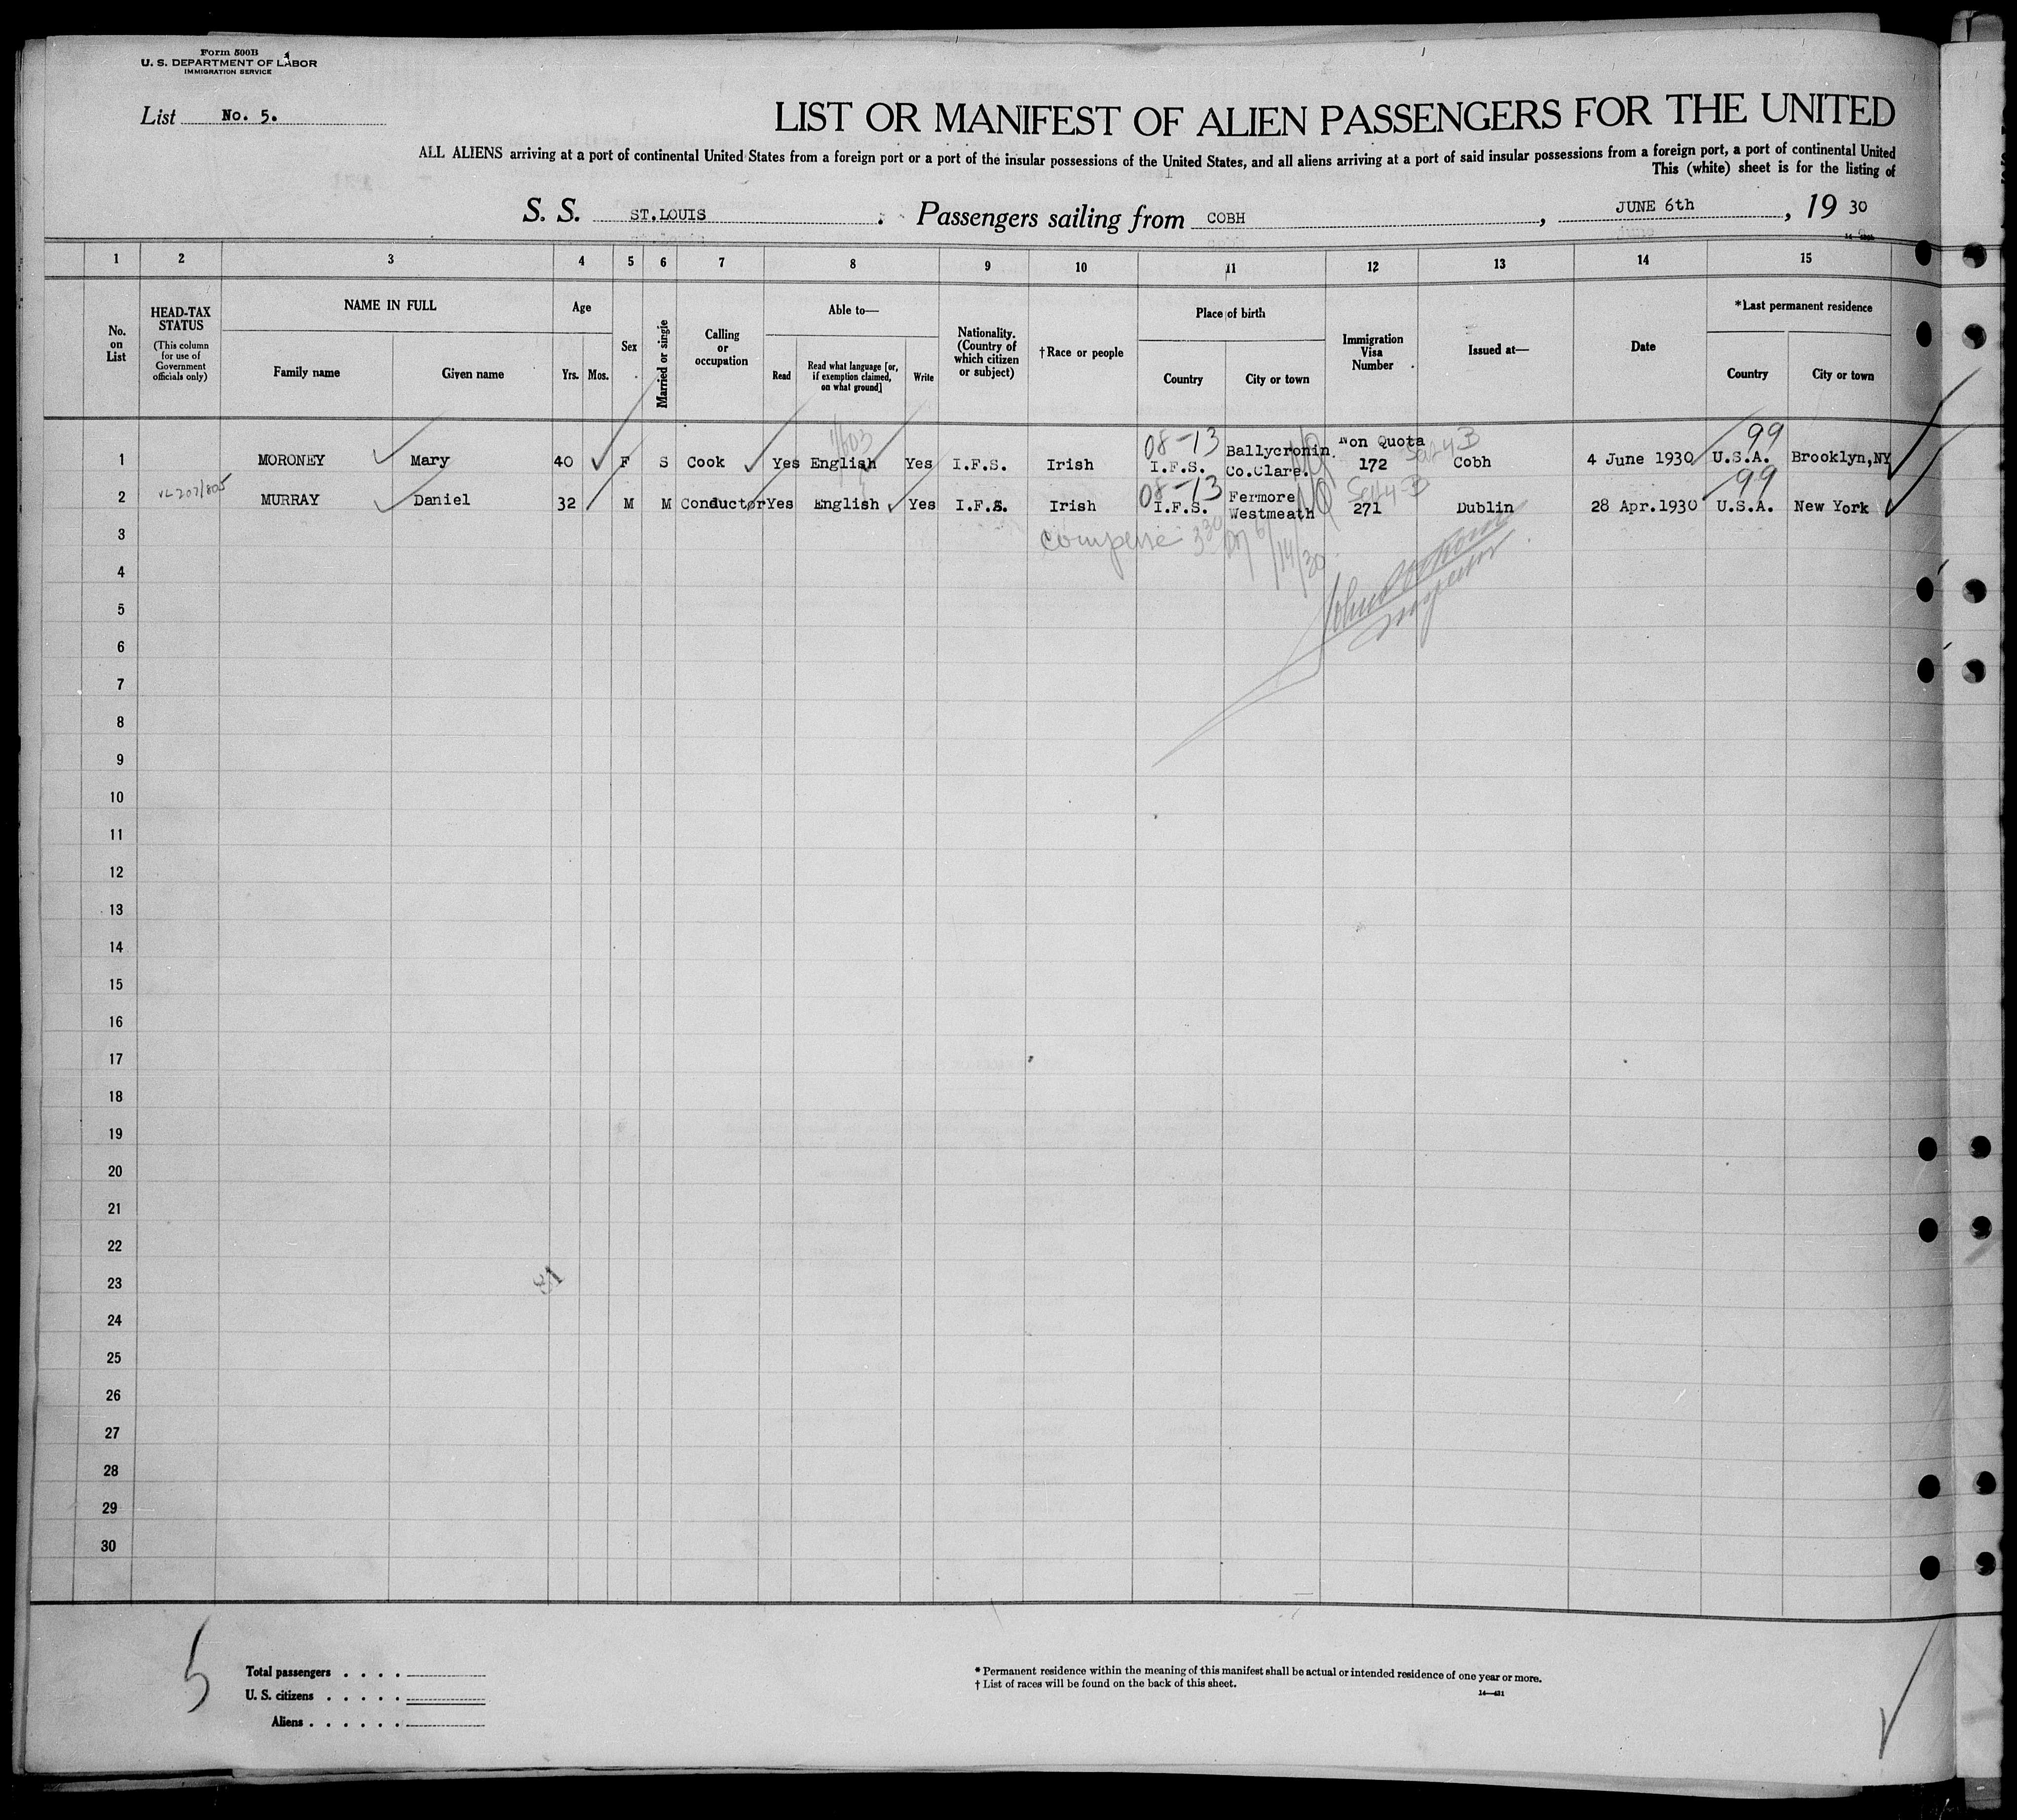 Form 500B
U. S. DEPARTMENT OF LABOR
IMMIGRATION SERVICE
List No. 5.
LIST OR MANIFEST OF ALIEN PASSENGERS FOR THE UNITED
ALL ALIENS arriving at a port of continental United States from a foreign port or a port of the insular possessions of the United States, and all aliens arriving at a port of said insular possessions from a foreign port, a port of continental United
This (white) sheet is for the listing of
S. S. ST.LOUIS . Passengers sailing from COBH , JUNE 6th , 19 30
1 2 3 4 5 6 7 8 9 10 11 12 13 14 15
No. on List
HEAD-TAX STATUS (This column for use of Government officials only)
NAME IN FULL
Family name Given name
Age
Yrs. Mos.
Sex
Married or single
Calling or occupation
Able to—
Read Read what language [or, if exemption claimed, on what ground] Write
Nationality. (Country of which citizen or subject)
†Race or people
Place of birth
Country City or town
Immigration Visa Number
Issued at—
Date
*Last permanent residence
Country City or town
08-13 Non Quota 99
1 MORONEY Mary 40 F S Cook Yes English Yes I.F.S. Irish I.F.S. Ballycronin. Co.Clare. NQ 172 Cobh 4 June 1930 U.S.A. Brooklyn,NY
08-13 99
2 MURRAY Daniel 32 M M Conductor Yes English Yes I.F.S. Irish I.F.S. Fermore Westmeath NQ 271 Dublin 28 Apr.1930 U.S.A. New York
3
4
5
6
7
8
9
10
11
12
13
14
15
16
17
18
19
20
21
22
23
24
25
26
27
28
29
30
5
Total passengers . . . .
U. S. citizens . . . . .
Aliens . . . . . .
* Permanent residence within the meaning of this manifest shall be actual or intended residence of one year or more.
† List of races will be found on the back of this sheet.